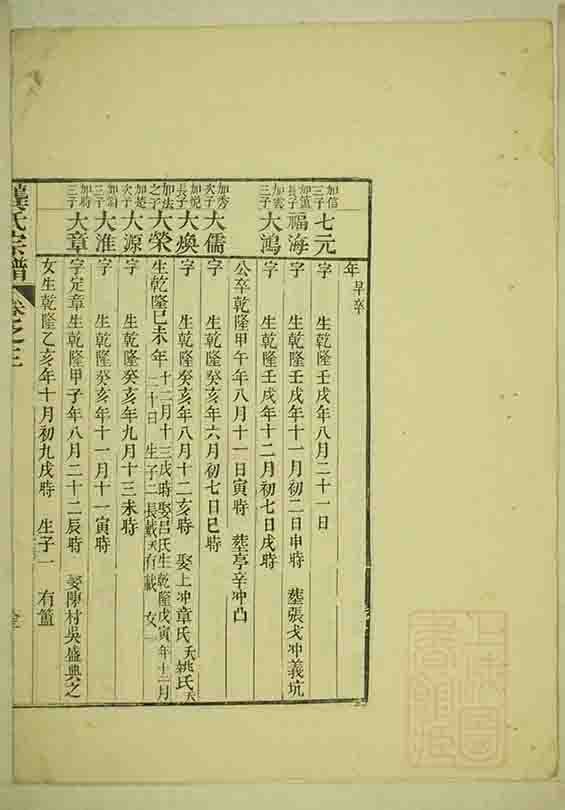 年 早卒
加信三子 七元 字 生乾隆壬戌年八月二十一日
加篁長子 福海 字 生乾隆壬戌年十一月初二日申時 塟張戈冲義坑
加雲三子 大鴻 字 生乾隆壬戌年十二月初七日戌時
公卒乾隆甲午年八月十一日寅時 塟亭辛冲凸
加秀次子 大儒 字 生乾隆癸亥年六月初七日巳時
加悅長子 大煥 字 生乾隆癸亥年八月十二亥時 娶上冲章氏夭姚氏夭
加法之子 大榮 生乾隆巳未年十二月十三戌時娶呂氏生乾隆戊寅年十二月二十日 生子二長戴夭有戴 女一
加楚次子 大源 字 生乾隆癸亥年九月十三未時
三子 大淮 字 生乾隆癸亥年十一月十一寅時
加時三子 大章 字定章生乾隆甲子年八月二十二辰時 娶陳村吳盛典之
女生乾隆乙亥年十月初九戌時 生子一 有篁
龔氏宗譜 卷之三
上海圖書館藏